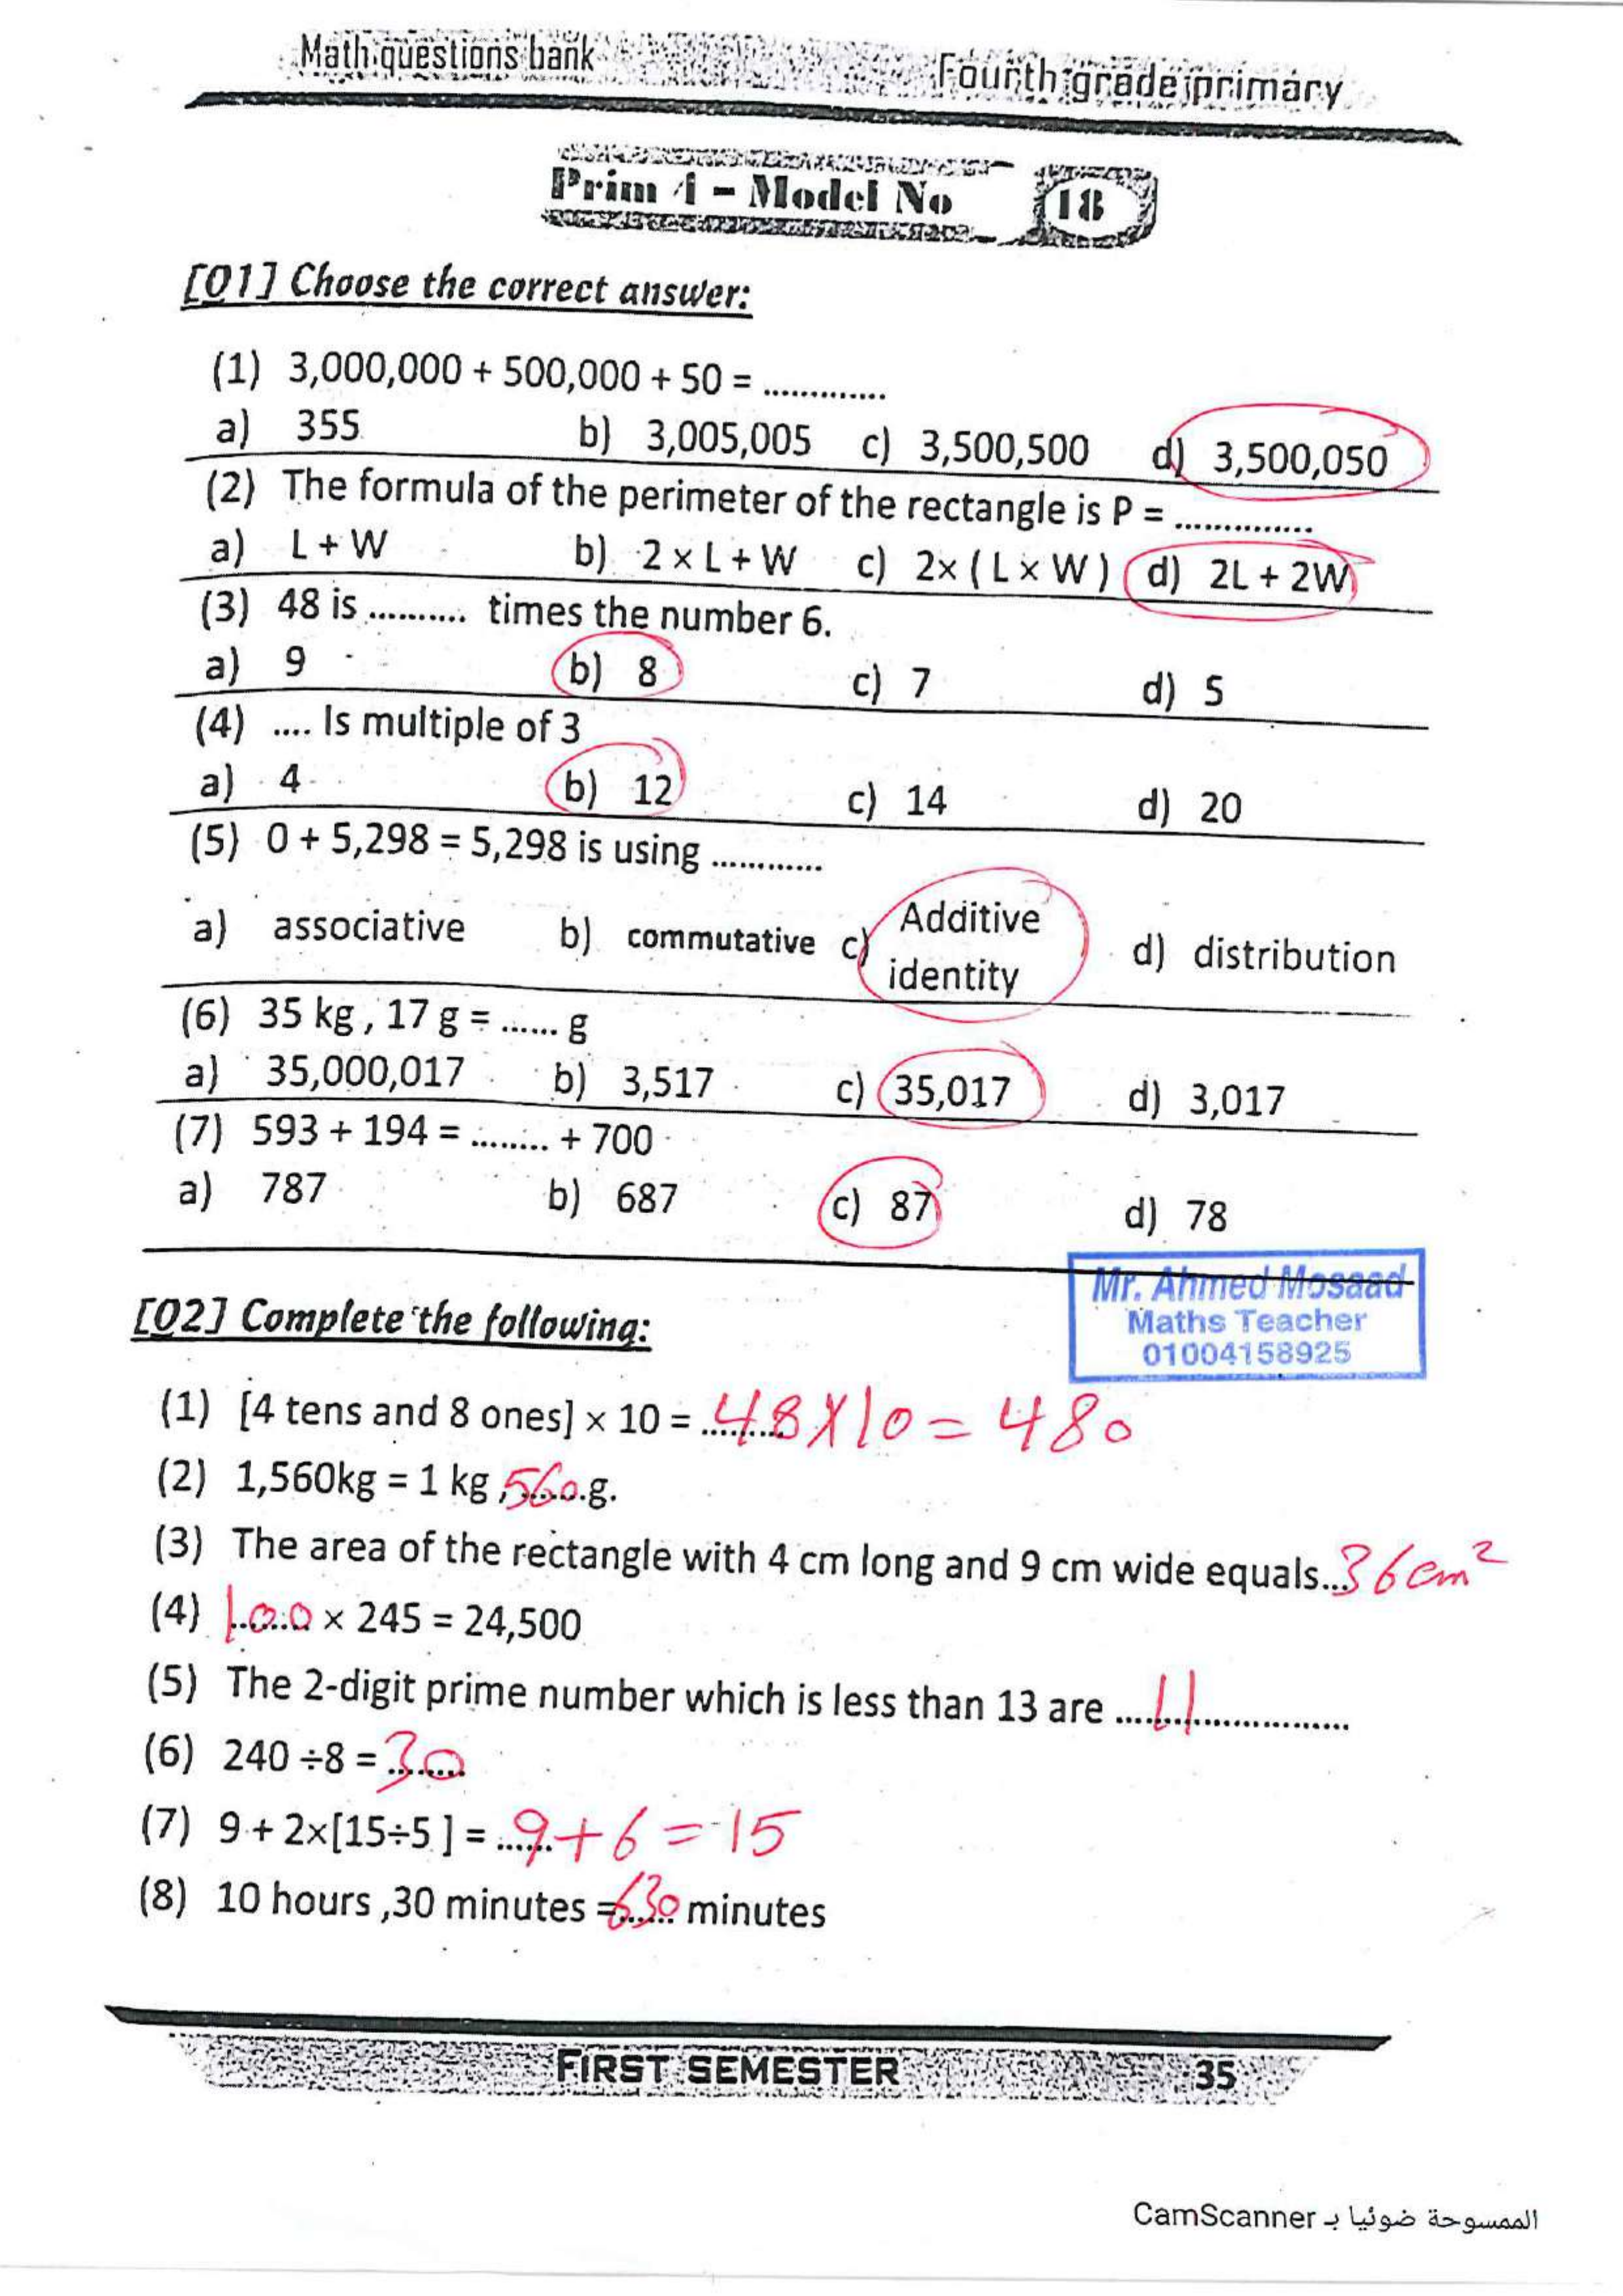 Math questions bank
Fourth grade primary
Prim 4 - Model No 18
[Q1] Choose the correct answer:
(1) 3,000,000 + 500,000 + 50 = .............
a) 355 b) 3,005,005 c) 3,500,500 d) 3,500,050
(2) The formula of the perimeter of the rectangle is P = ...............
a) L + W b) 2 × L + W c) 2× ( L × W ) d) 2L + 2W
(3) 48 is .......... times the number 6.
a) 9 b) 8 c) 7 d) 5
(4) .... Is multiple of 3
a) 4 b) 12 c) 14 d) 20
(5) 0 + 5,298 = 5,298 is using ............
a) associative b) commutative c) Additive identity d) distribution
(6) 35 kg , 17 g = ...... g
a) 35,000,017 b) 3,517 c) 35,017 d) 3,017
(7) 593 + 194 = ........ + 700
a) 787 b) 687 c) 87 d) 78
Mr. Ahmed Mosaad
Maths Teacher
01004158925
[Q2] Complete the following:
(1) [4 tens and 8 ones] × 10 = 48 X 10 = 480
(2) 1,560kg = 1 kg , 560 g.
(3) The area of the rectangle with 4 cm long and 9 cm wide equals... 36 cm²
(4) 100 × 245 = 24,500
(5) The 2-digit prime number which is less than 13 are .... 11 ..............
(6) 240 ÷8 = 30
(7) 9 + 2×[15÷5 ] = 9 + 6 = 15
(8) 10 hours ,30 minutes = 630 minutes
FIRST SEMESTER
35
الممسوحة ضوئيا بـ CamScanner